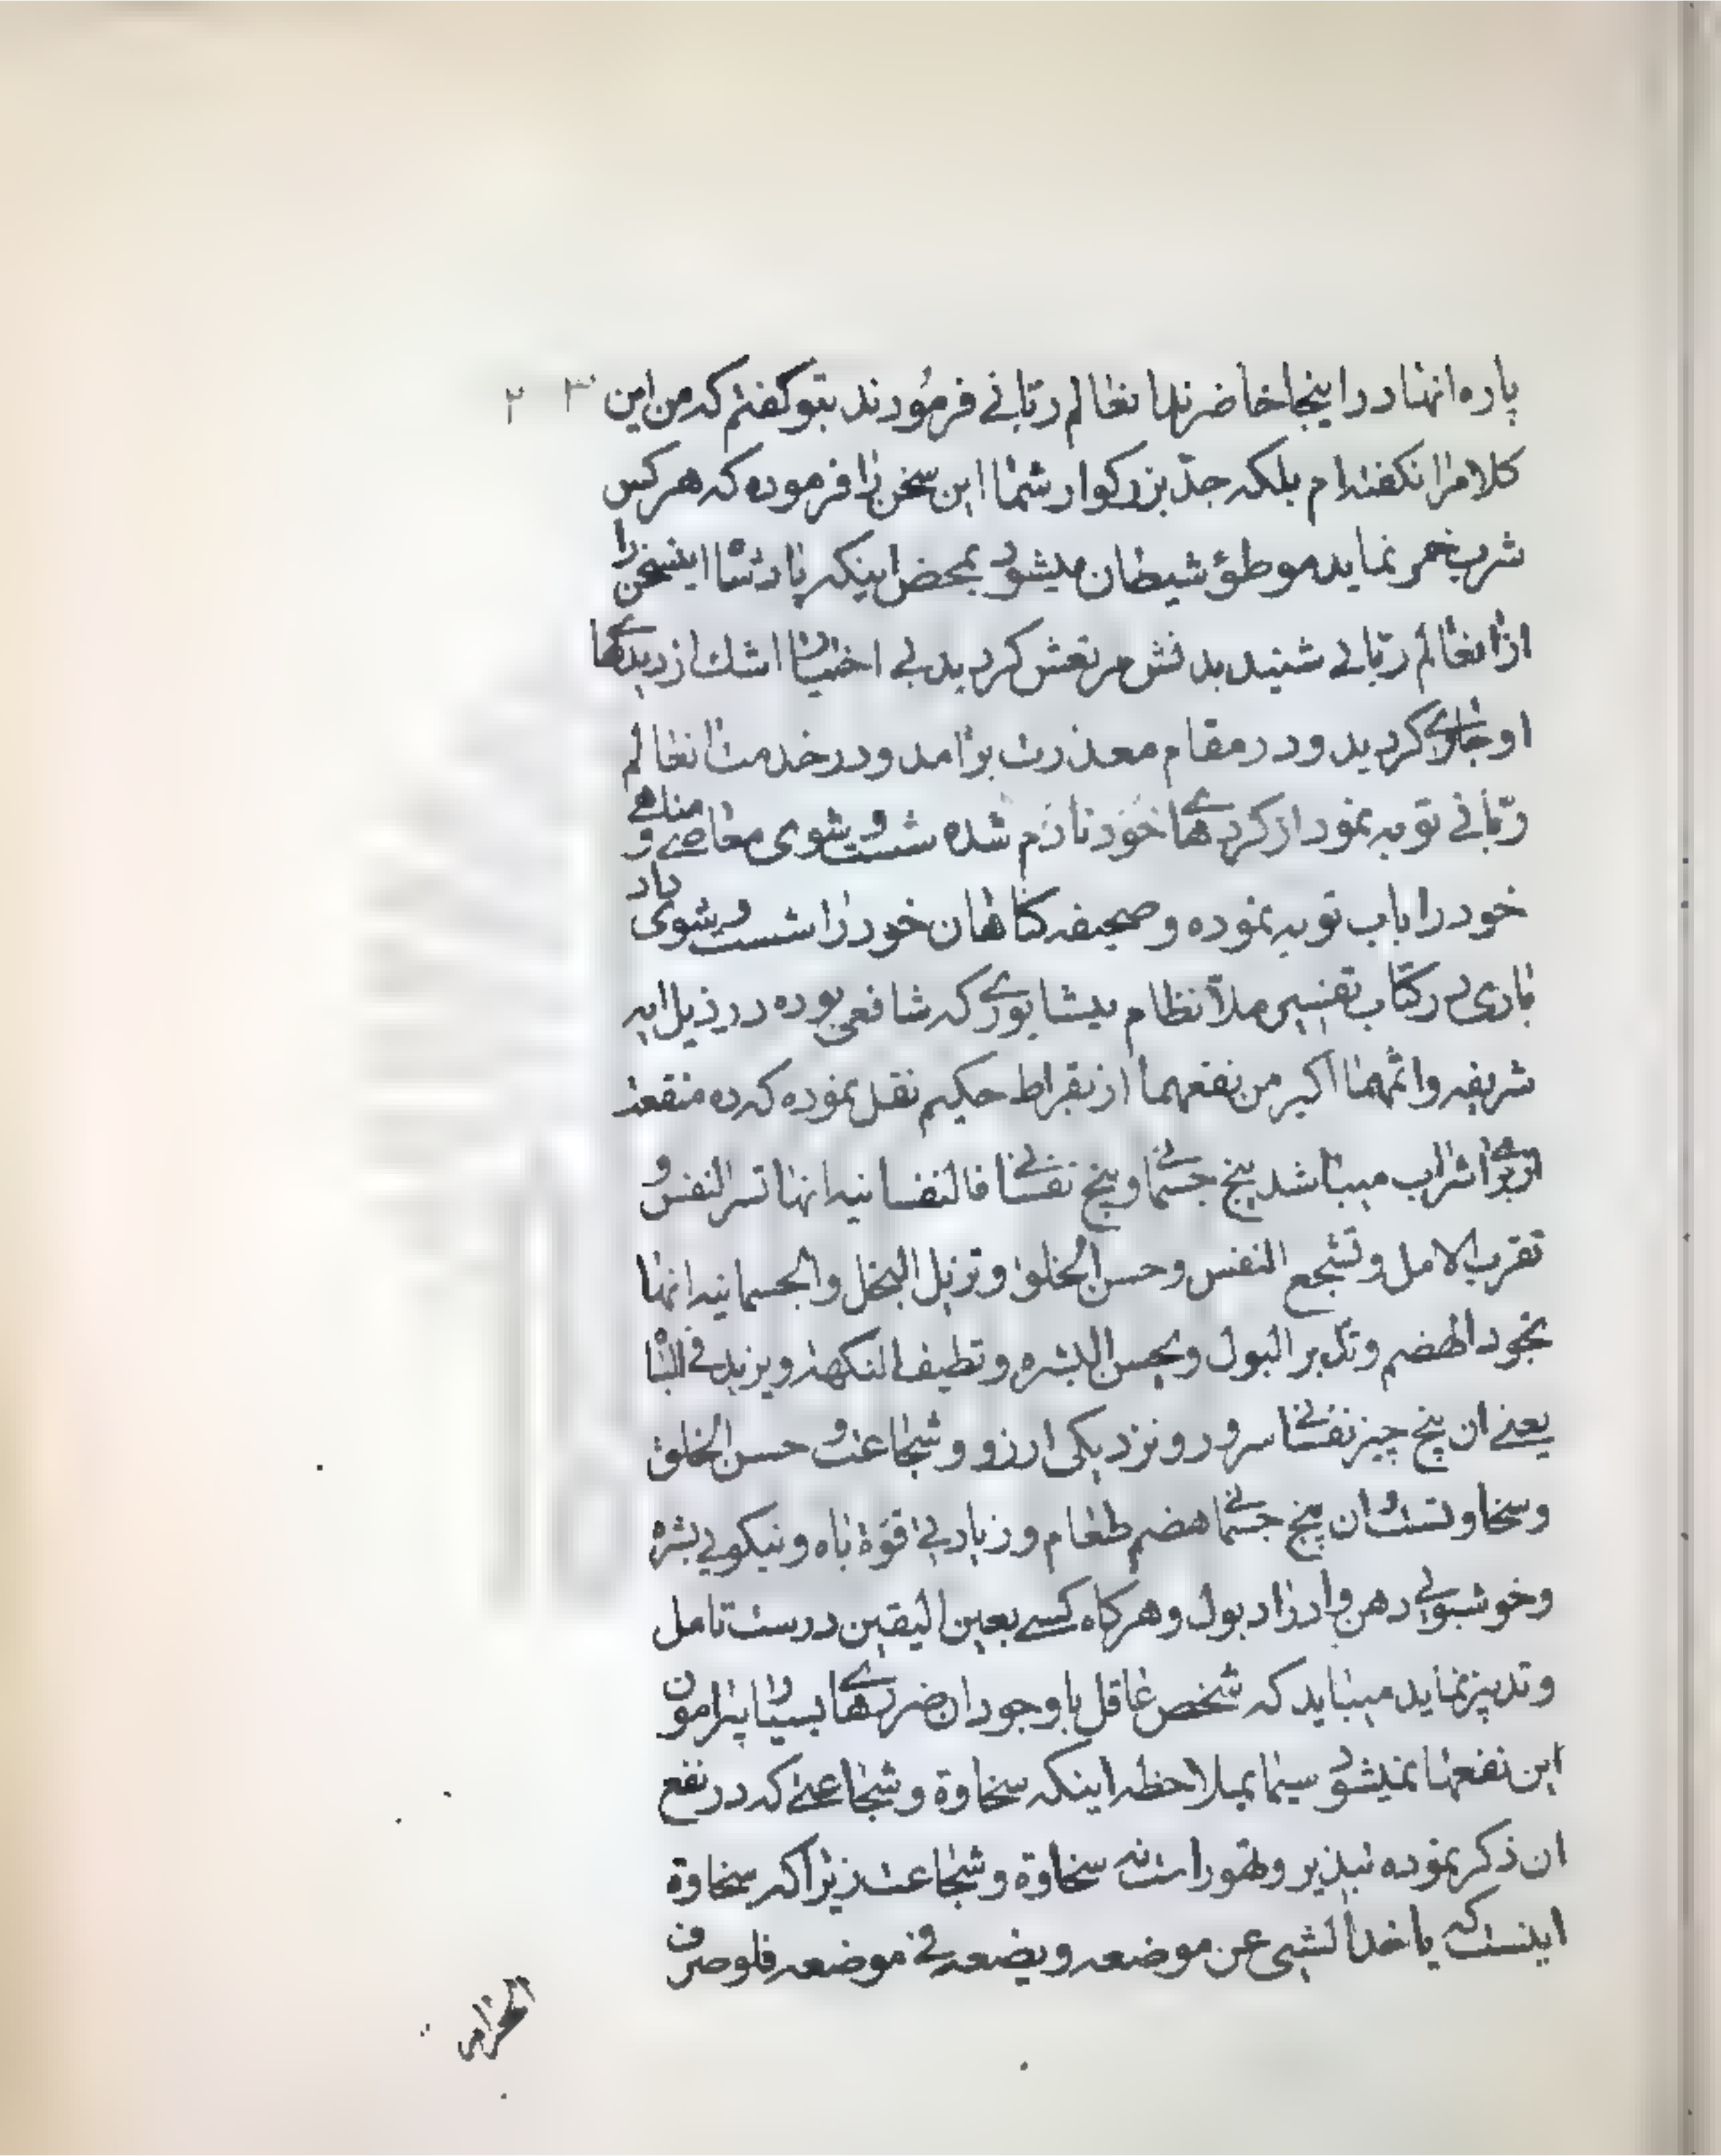 پاره انها در اینجا حاضرند انعالم ربانی فرمودند بتو کفتم که من این ۲۳
کلام را نکفته‌ام بلکه جدّ بزرکوار شما این سخن را فرموده که هر کس
شرب خمر نماید موطؤ شیطان میشود بمحض اینکه پادشاه اینسخن را
از انعالم ربانی شنید بدنش مرتعش کردید بی اختیار اشک از دیدهای
او جاری کردید و در مقام معذرت برآمد و در خدمت انعالم
ربّانی توبه نمود از کردهای خود نادم شده شست و شوی معاصی و مناهی
خود را باب توبه نموده و صحیفه کناهان خود را شست و شوی داد
باری در کتاب تفسیر ملّا نظام نیشابوری که شافعی بوده در ذیل ایه
شریفه واثمهما اکبر من نفعهما از بقراط حکیم نقل نموده که ده منفعت
از برای شراب میباشد پنج جسمانی و پنج نفسانی فالنفسانیه انها تسر النفس و
تقرب الامل و تشجع النفس و حسن الخلق و تزیل البخل و الجسمانیه انها
تجود الهضم و تدبر البول و یحسن البشره و تطیف النکهة و یزید فی الباه
یعنی ان پنج چیز نفسانی سرور و نزدیکی ارزو و شجاعت و حسن الخلق
و سخاوتست و ان پنج جسمانی هضم طعام و زیادتی قوّة باه و نیکویی بشره
و خوشبویی دهن و ادرار بول و هرکاه کسی بعین الیقین درست تامل
و تدبیر نماید میباید که شخص عاقل با وجود ان ضررهای بسیار پیرامون
این نفعها نمیشود سیما بملاحظه اینکه سخاوة و شجاعتی که در نفع
ان ذکر نموده تبذیر و تهور است نه سخاوة و شجاعت زیرا که سخاوة
اینست که یاخذ الشیی عن موضعه و یضعه فی موضعه فلو صرف
الحرام